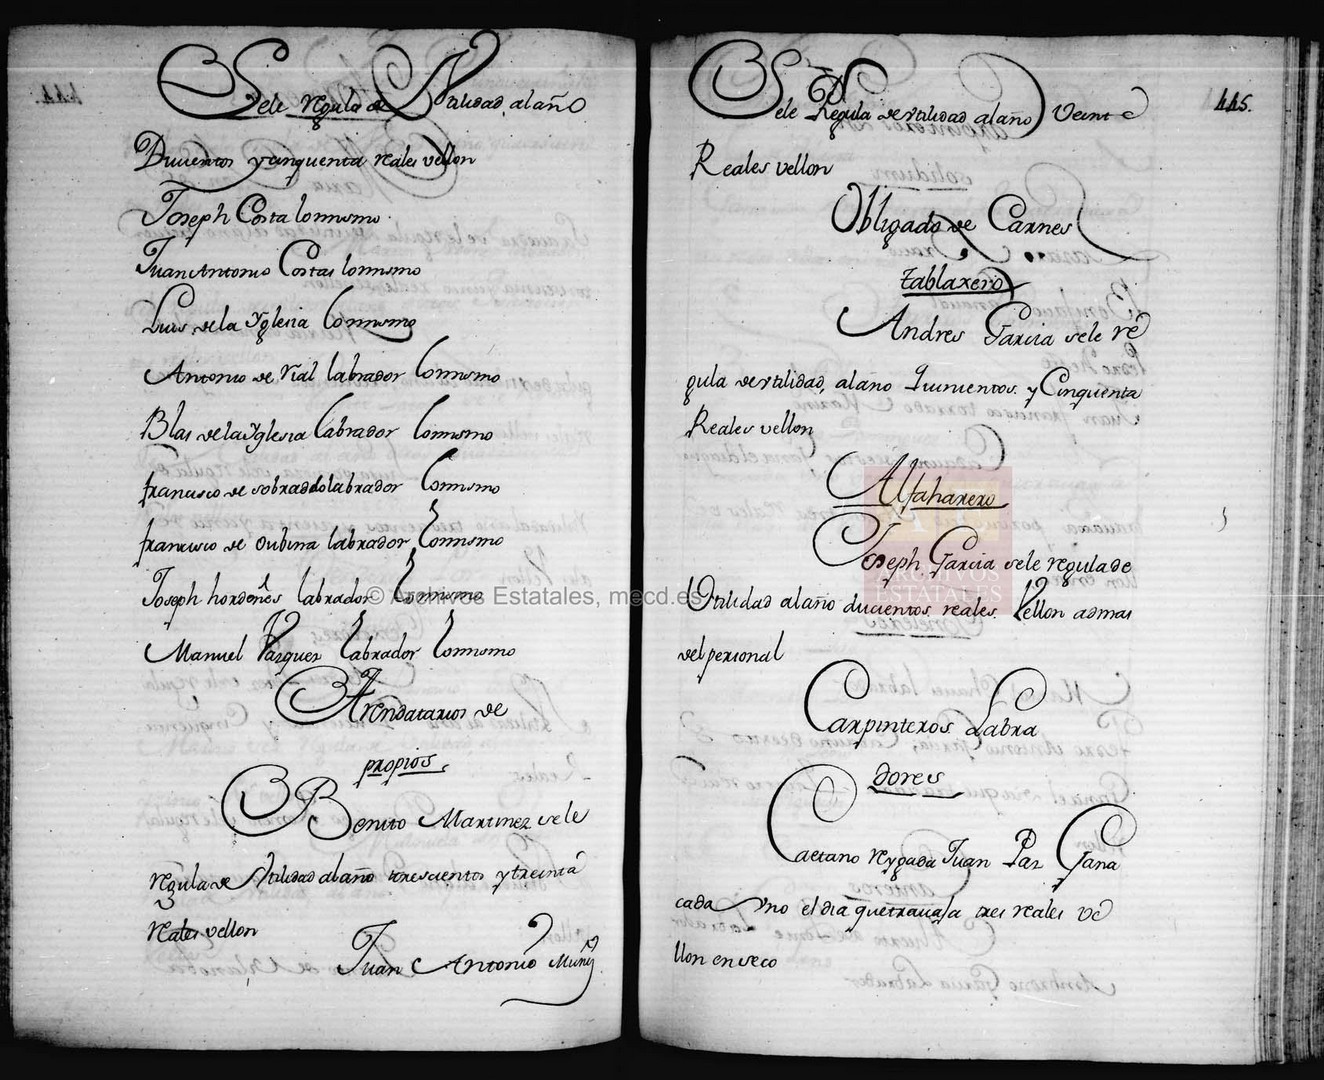 Sele regula de Utilidad al año
Ducientos ycinquenta reales vellon
Joseph Costa lomismo
Juan Antonio Costas lomismo
Luis dela Yglesia lomismo
Antonio de Vial labrador lomismo
Blas delaYglesia labrador lomismo
francisco de sobraddo labrador lomismo
francisco de oubina labrador lomismo
Joseph hordenes labrador lomismo
Manuel Vazquez labrador lomismo
Arendatarios de
propios
Benito Martinez sele
regula de Utilidad alaño trescientos ytreinta
reales vellon
Juan Antonio Muñiz
445.
Sele Regula de utilidad al año Veinte
Reales vellon
Obligado de Carnes
tablaxero
Andres Garcia sele re
gula de utilidad, alaño Quinientos y Cinquenta
Reales vellon
Alfaharero
Joseph Garcia sele regula de
Utilidad alaño ducientos reales Vellon admas
del personal
Carpinteros Labra
dores
Caetano reygada Juan Paz Gana
cada Uno el dia quetravaja tres reales ve
llon enseco
© Archivos Estatales, mecd.es
ARCHIVOS
ESTATALES